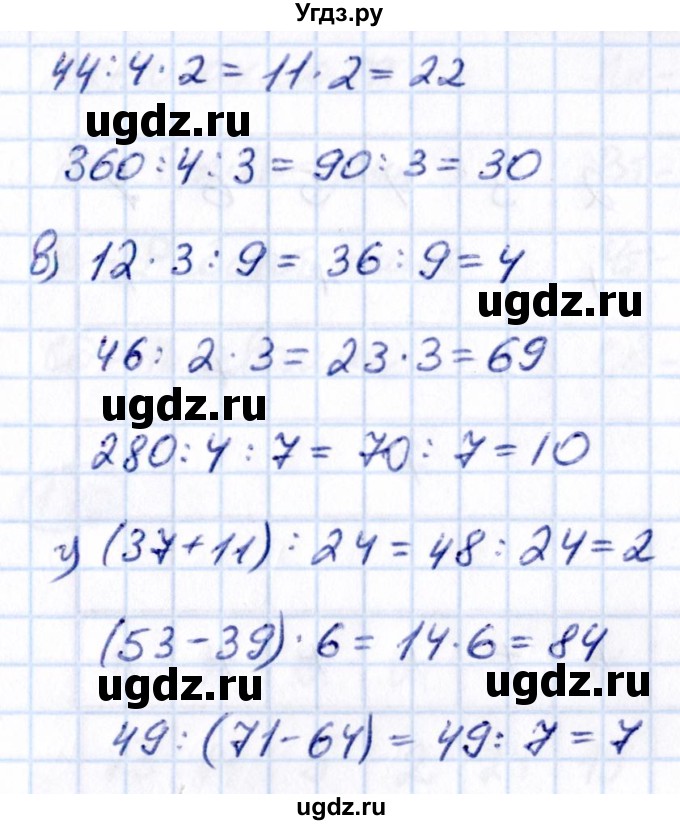 Угдз.ру
44 : 4 · 2 = 11 · 2 = 22
ugdz.ru
360 : 4 : 3 = 90 : 3 = 30
в) 12 · 3 : 9 = 36 : 9 = 4
ugdz.ru
46 : 2 · 3 = 23 · 3 = 69
ugdz.ru
280 : 4 : 7 = 70 : 7 = 10
г) (37 + 11) : 24 = 48 : 24 = 2
(53 - 39) · 6 = 14 · 6 = 84
ugdz.ru ugdz.ru
49 : (71 - 64) = 49 : 7 = 7
ugdz.ru